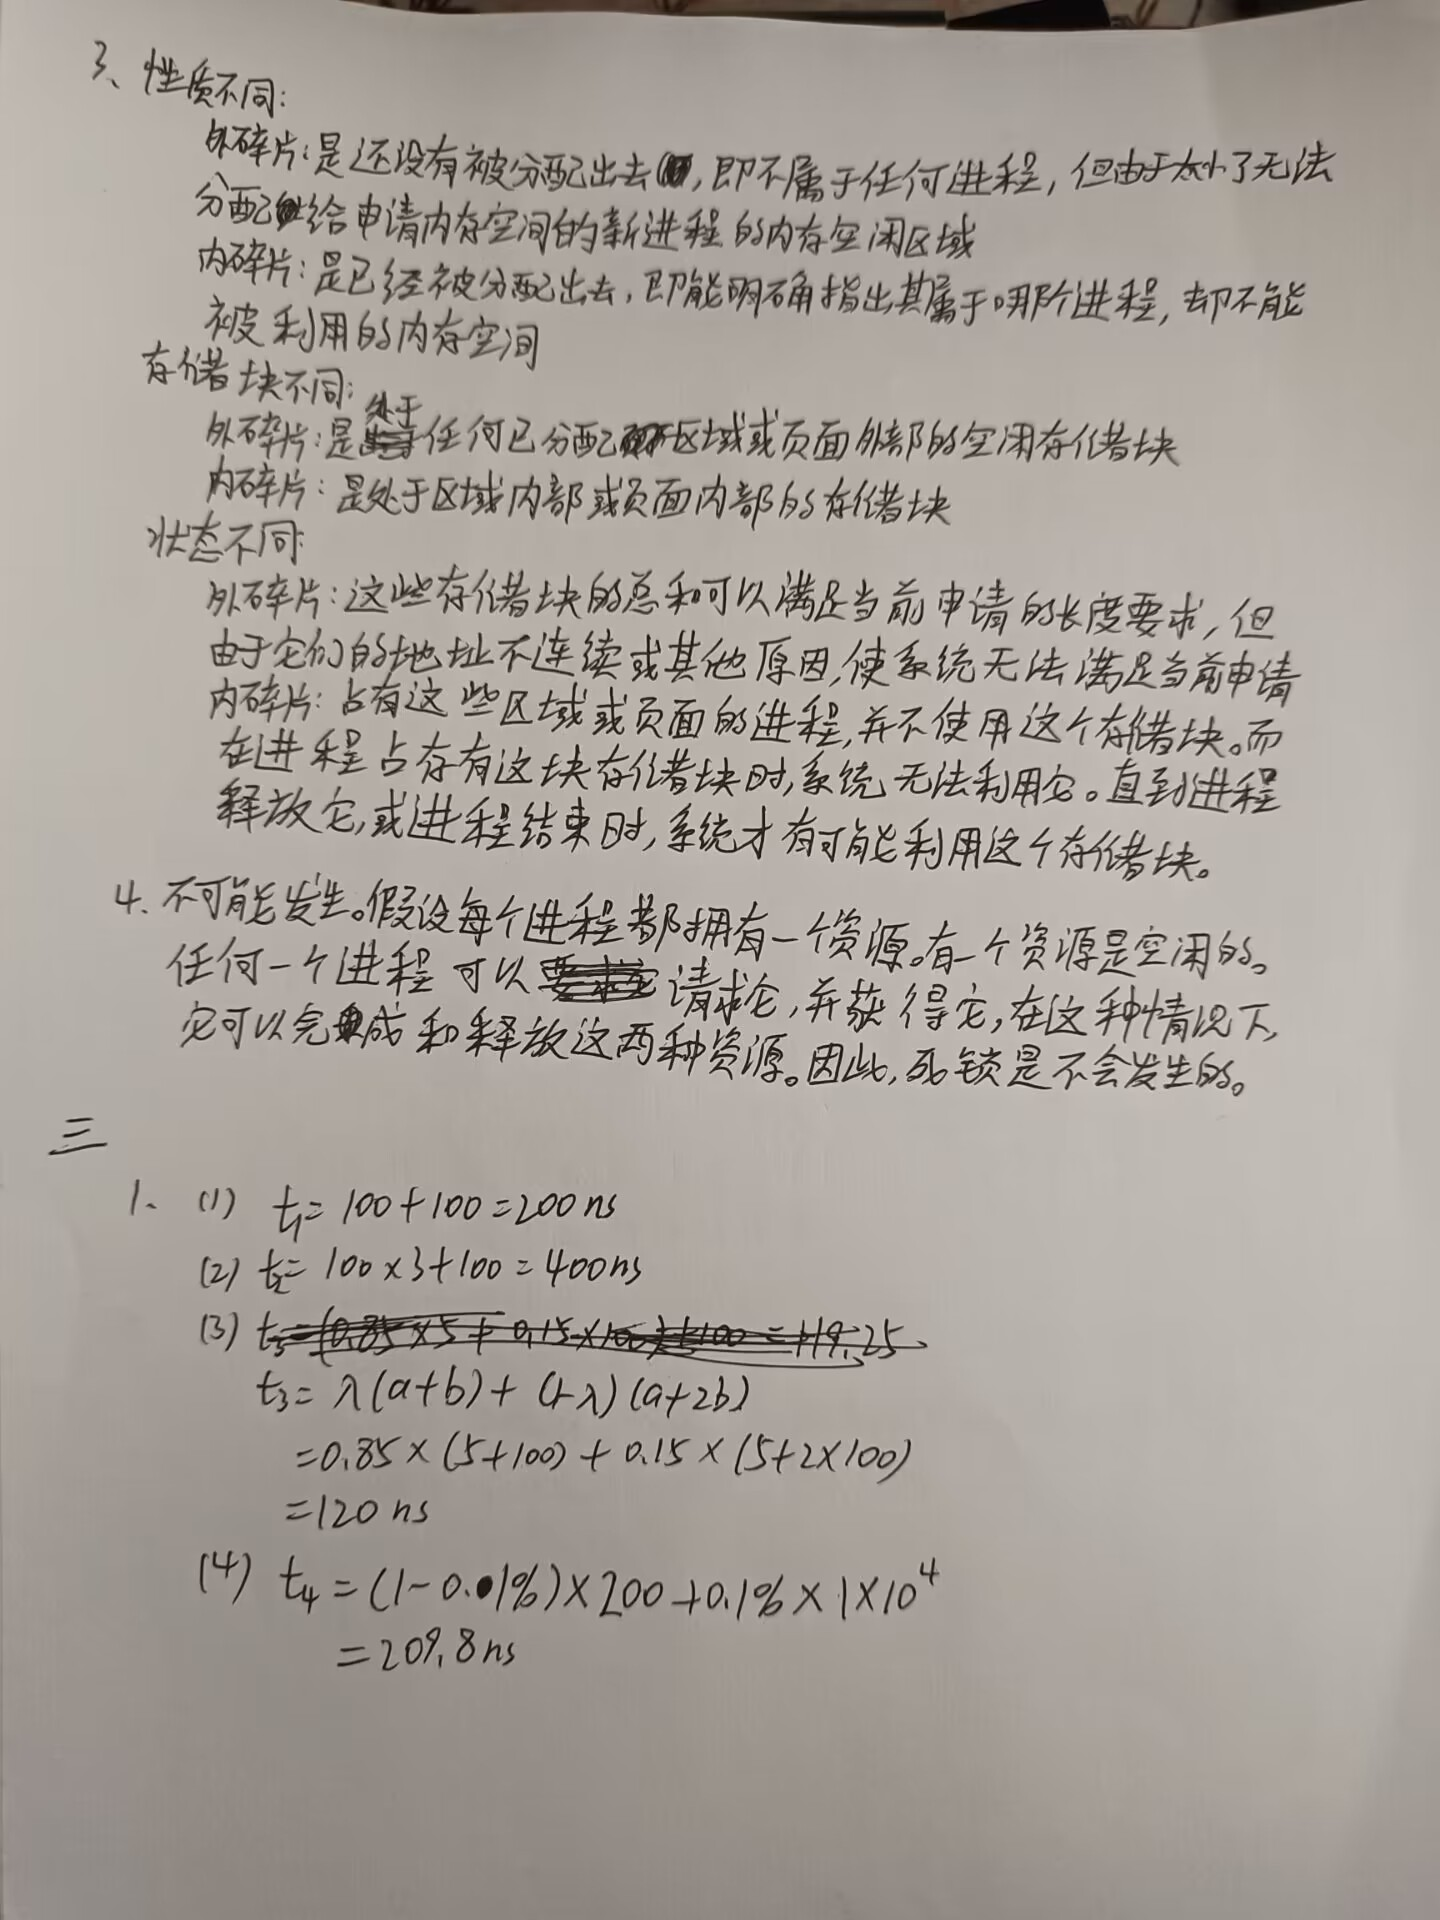 3、性质不同:
外碎片:是还没有被分配出去,即不属于任何进程,但由于太小了无法
分配给申请内存空间的新进程的内存空闲区域
内碎片:是已经被分配出去,即能明确指出其属于哪个进程,却不能
被利用的内存空间
存储块不同:
外碎片:是处于任何已分配区域或页面外部的空闲存储块
内碎片:是处于区域内部或页面内部的存储块
状态不同:
外碎片:这些存储块的总和可以满足当前申请的长度要求,但
由于它们的地址不连续或其他原因,使系统无法满足当前申请
内碎片:占有这些区域或页面的进程,并不使用这个存储块。而
在进程占存有这块存储块时,系统无法利用它。直到进程
释放它,或进程结束时,系统才有可能利用这个存储块。
4.不可能发生。假设每个进程都拥有一个资源。有一个资源是空闲的。
任何一个进程可以请求它,并获得它,在这种情况下,
它可以完成和释放这两种资源。因此,死锁是不会发生的。
三
1. (1) t₁= 100+100=200ns
(2) t₂= 100×3+100=400ns
(3) t₃=(0.85×5+0.15×100)+100=119.25
t₃= λ(a+b)+(1-λ)(a+2b)
=0.85×(5+100)+0.15×(5+2×100)
=120ns
(4) t₄=(1-0.1%)×200+0.1%×1×10⁴
=209.8ns